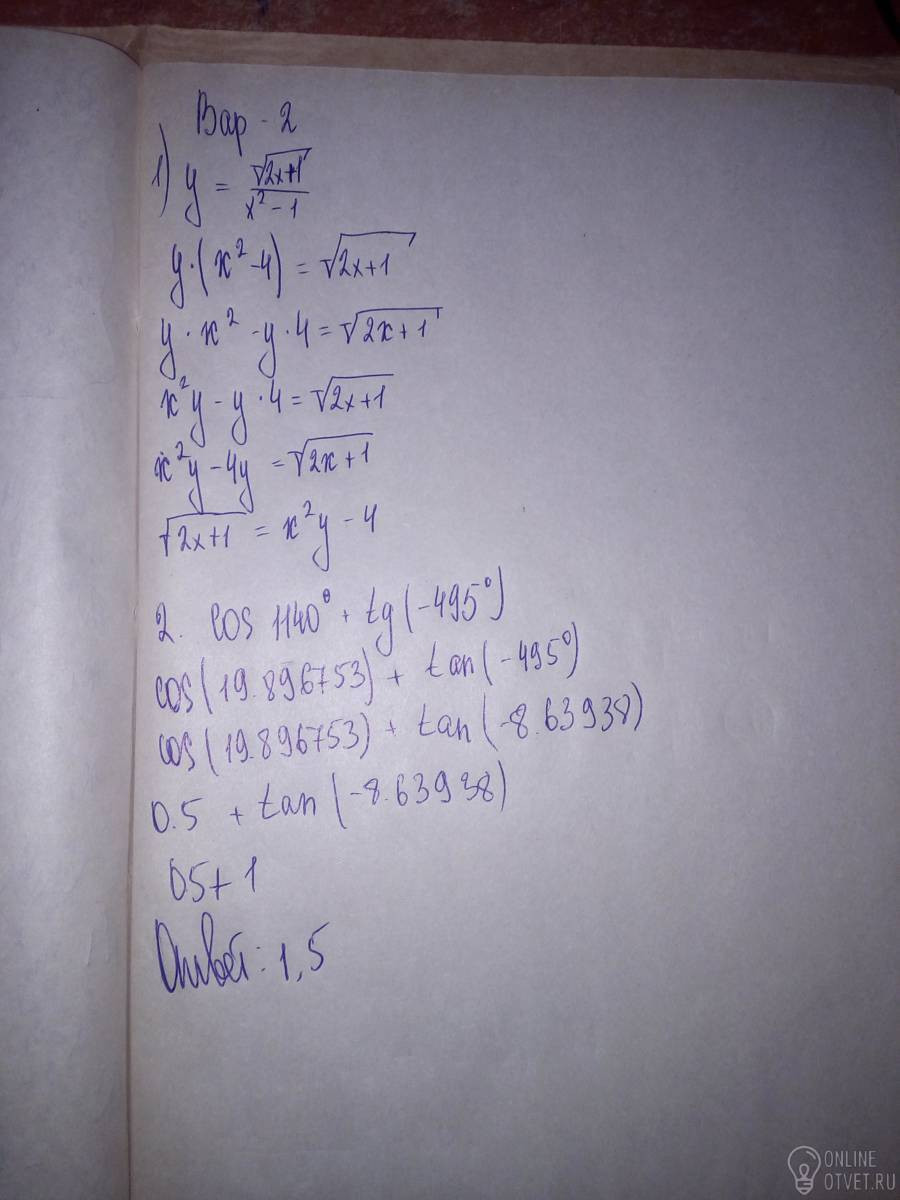 Вар - 2
1) y = √2x+1 / x² - 1
y·(x² - 4) = √2x+1
y · x² - y · 4 = √2x + 1
x²y - y · 4 = √2x+1
x²y - 4y = √2x + 1
√2x+1 = x²y - 4
2. cos 1140° + tg(-495°)
cos(19.896753) + tan(-495°)
cos(19.896753) + tan(-8.63938)
0.5 + tan(-8.63938)
05 + 1
Ответ: 1,5
ONLINE
OTVET.RU